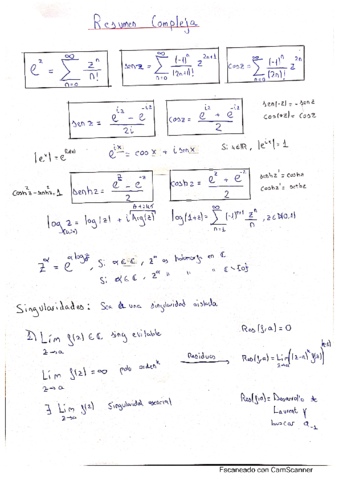 Resumen Compleja
e^z = ∑_{n=0}^{∞} z^n/n!
sen z = ∑_{n=0}^{∞} (-1)^n/(2n+1)! z^{2n+1}
cos z = ∑_{n=0}^{∞} (-1)^n/(2n)! z^{2n}
sen z = (e^{iz} - e^{-iz})/2i
cos z = (e^{iz} + e^{-iz})/2
sen(-z) = -sen z
cos(-z) = cos z
e^{ix} = cos x + i sen x
Si x∈ℝ, |e^{ix}| = 1
cosh²z - senh²z = 1
senh z = (e^z - e^{-z})/2
cosh z = (e^z + e^{-z})/2
senh z' = cosh z
cosh z' = senh z
log z = log|z| + i Arg(z)
log(1+z) = ∑_{n=1}^{∞} (-1)^{n+1} z^n/n
z^α = e^{α log z}, Si
Singularidades: Sea a una singularidad aislada
Lim f(z) ∈ ℂ sing evitable
z→a
Res(f,a) = 0
Lim f(z) = ∞ polo orden k
z→a
Residuos
Res(f,a) = Lim
∄ Lim f(z) Singularidad esencial
z→a
Res(f,a) = Desarrollo de
Laurent y
buscar a_{-1}
Escaneado con CamScanner